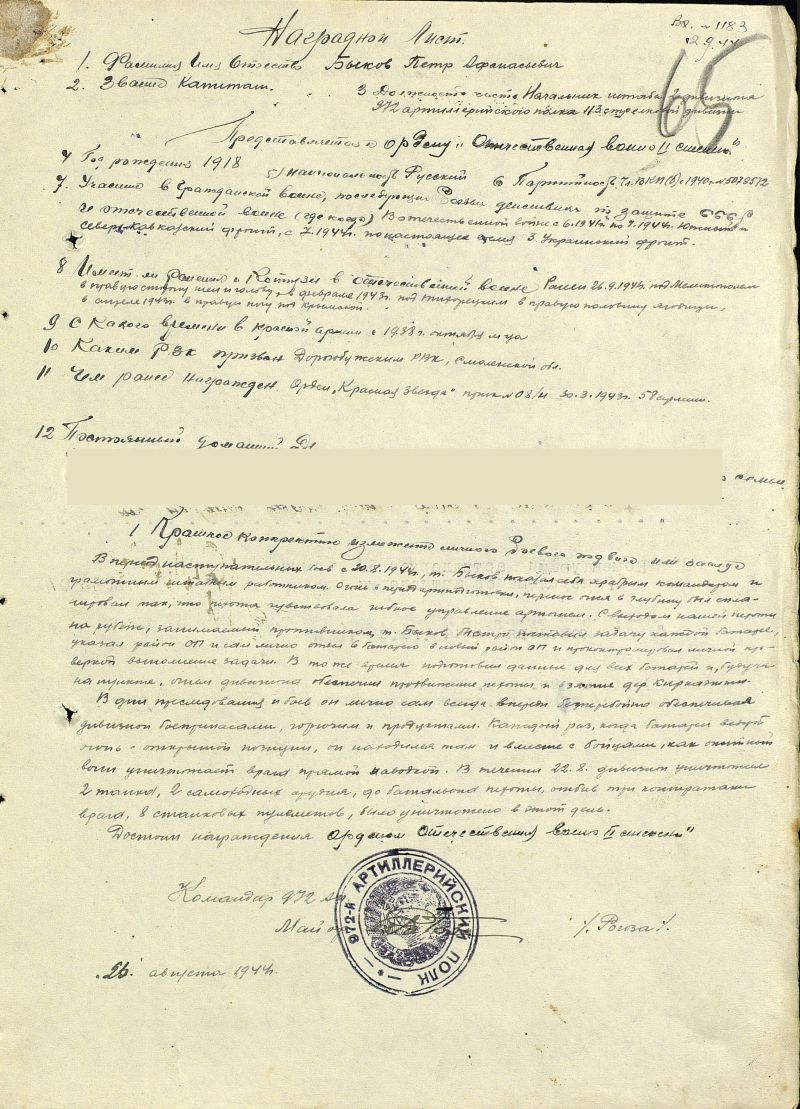 Вх. № 1183
2.9.44
65
Наградной Лист.
1. Фамилия Имя Отчество Быков Петр Афанасьевич
2. Звание Капитан. 3 Должность часть Начальник штаба 2 дивизиона
972 артиллерийского полка 113 стрелковой дивизии
Представляется к ордену „Отечественная война II степени"
4 Год рождения 1918
5) Национальность Русский 6 Партийность Чл. ВКП(б) с 1940г. № 5079572
7. Участие в Гражданской войне, последующих боевых действиях по защите СССР
и отечественной войне (где когда) В отечественной войне с 6.1941г по 7.1944г. Южный и
Северо Кавказский фронт, с 7.1944г. по настоящее время 3. Украинский фронт.
8 Имеет ли ранения и Контузии в отечественной войне Ранен 26.9.1941г. под Мелитополем
в правую сторону шеи и голову, в феврале 1943г. под Тихорецким в правую половину ягодицы,
в апреле 1943г. в правую ногу под Крымской.
9 С Какого времени в Красной армии с 1938г. октября м-ца
10 Каким РВК призван Дорогобужским РВК, Смоленской обл.
11 Чем ранее награжден Орден „Красная Звезда" приказ № 08/н 30.3.1943г. 58 армии.
12 Постоянный домашний
семьи
1 Краткое конкретное изложение личного боевого подвига или заслуг
В период наступательных боев с 20.8.1944г. т. Быков показал себя храбрым командиром и
грамотным штабным работником. Огонь в период артподготовки, перенос огня в глубину был спла-
нирован так, что пехота чувствовала гибкое управление артогнем. С выходом нашей пехоты
на рубеж, занимаемый противником, т. Быков быстро поставил задачу каждой батарее,
указал район ОП и сам лично отвел батарею в новый район ОП и проконтролировал личной про-
веркой выполнение задачи. В то же время подготовил данные для всех батарей и, будучи
на пункте, огнем дивизиона обеспечил продвижение пехоты и взятие дер.
В дни преследования и боев он лично сам всегда впереди бесперебойно обеспечивал
дивизион боеприпасами, горючим и продуктами. Каждый раз, когда батареи ведут
огонь с открытой позиции, он находился там и вместе с бойцами, как опытный
воин уничтожает врага прямой наводкой. В течении 22.8. дивизион уничтожил
2 танка, 2 самоходных орудия, до батальона пехоты, отбив три контратаки
врага, 8 станковых пулеметов, было уничтожено в этот день.
Достоин награждения орденом Отечественная война II степени"
Командир 972 ап
Майор /. Рогоза /.
972-й АРТИЛЛЕРИЙСКИЙ ПОЛК
„26" августа 1944г.